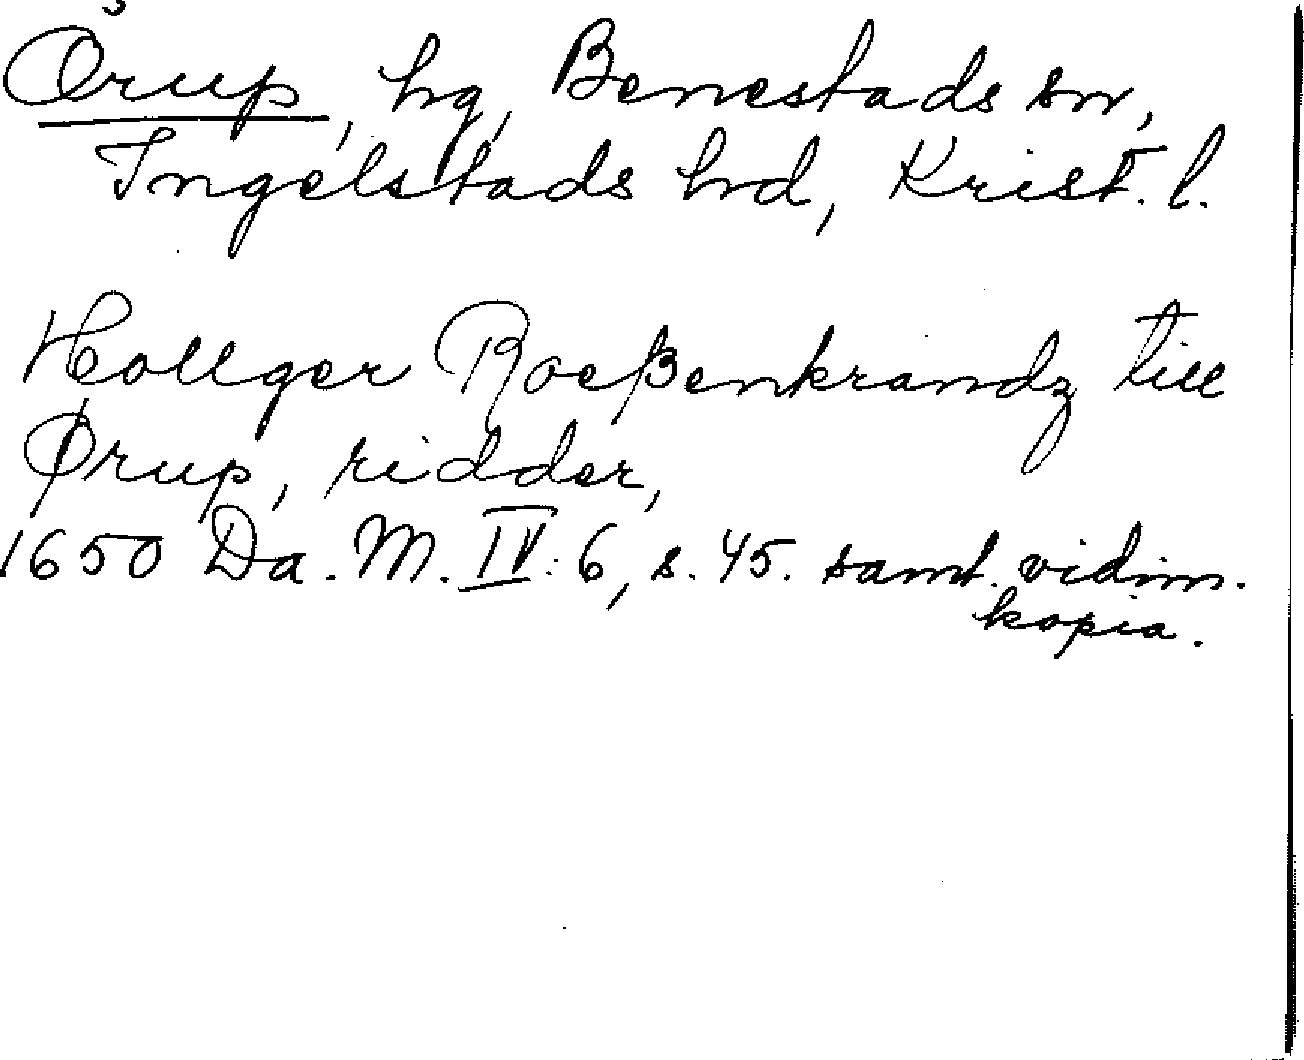 Örup, hg, Benestads sn,
Ingelstads hd, Krist. l.
Hollger Roeßenkrandz till
Ørup, ridder,
1650 Da. M. IV: 6, s. 45. samt. vidim.
kopia.